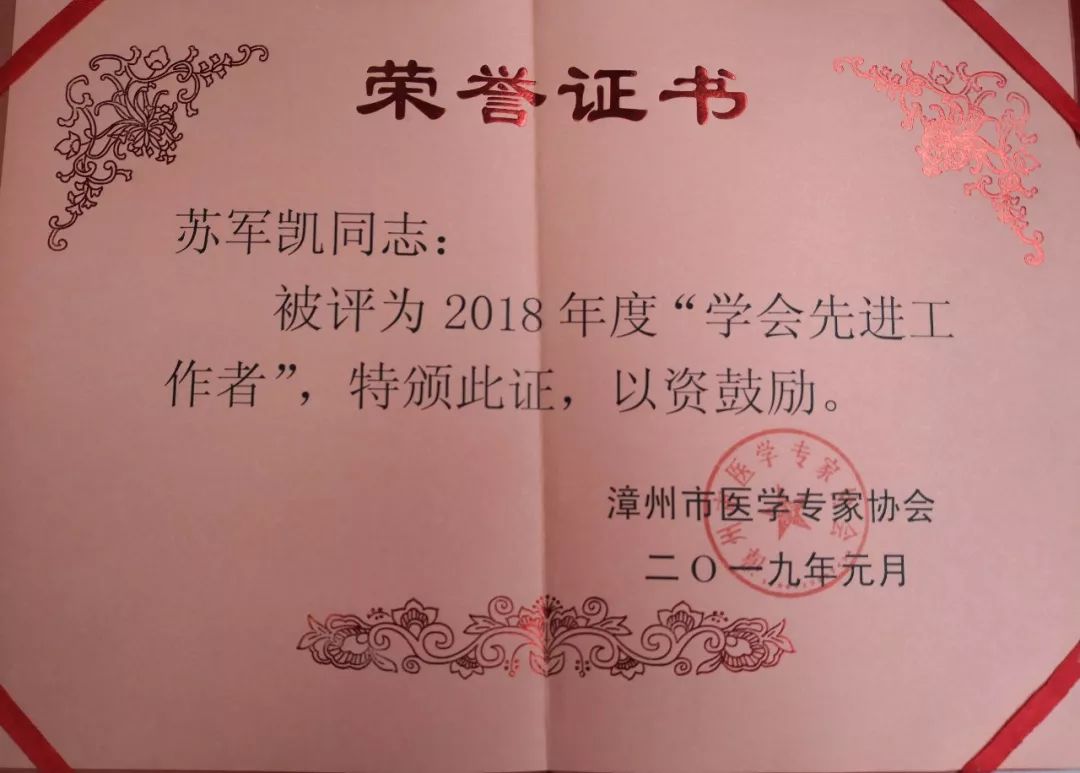 荣誉证书
苏军凯同志：
被评为2018年度“学会先进工
作者”，特颁此证，以资鼓励。
漳州市医学专家协会
二〇一九年元月
漳州市医学专家协会